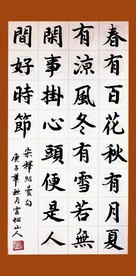 春有百花秋有月夏
有涼風冬有雪若無
閑事掛心頭便是人
間好時節
庚子年秋月雲松山人